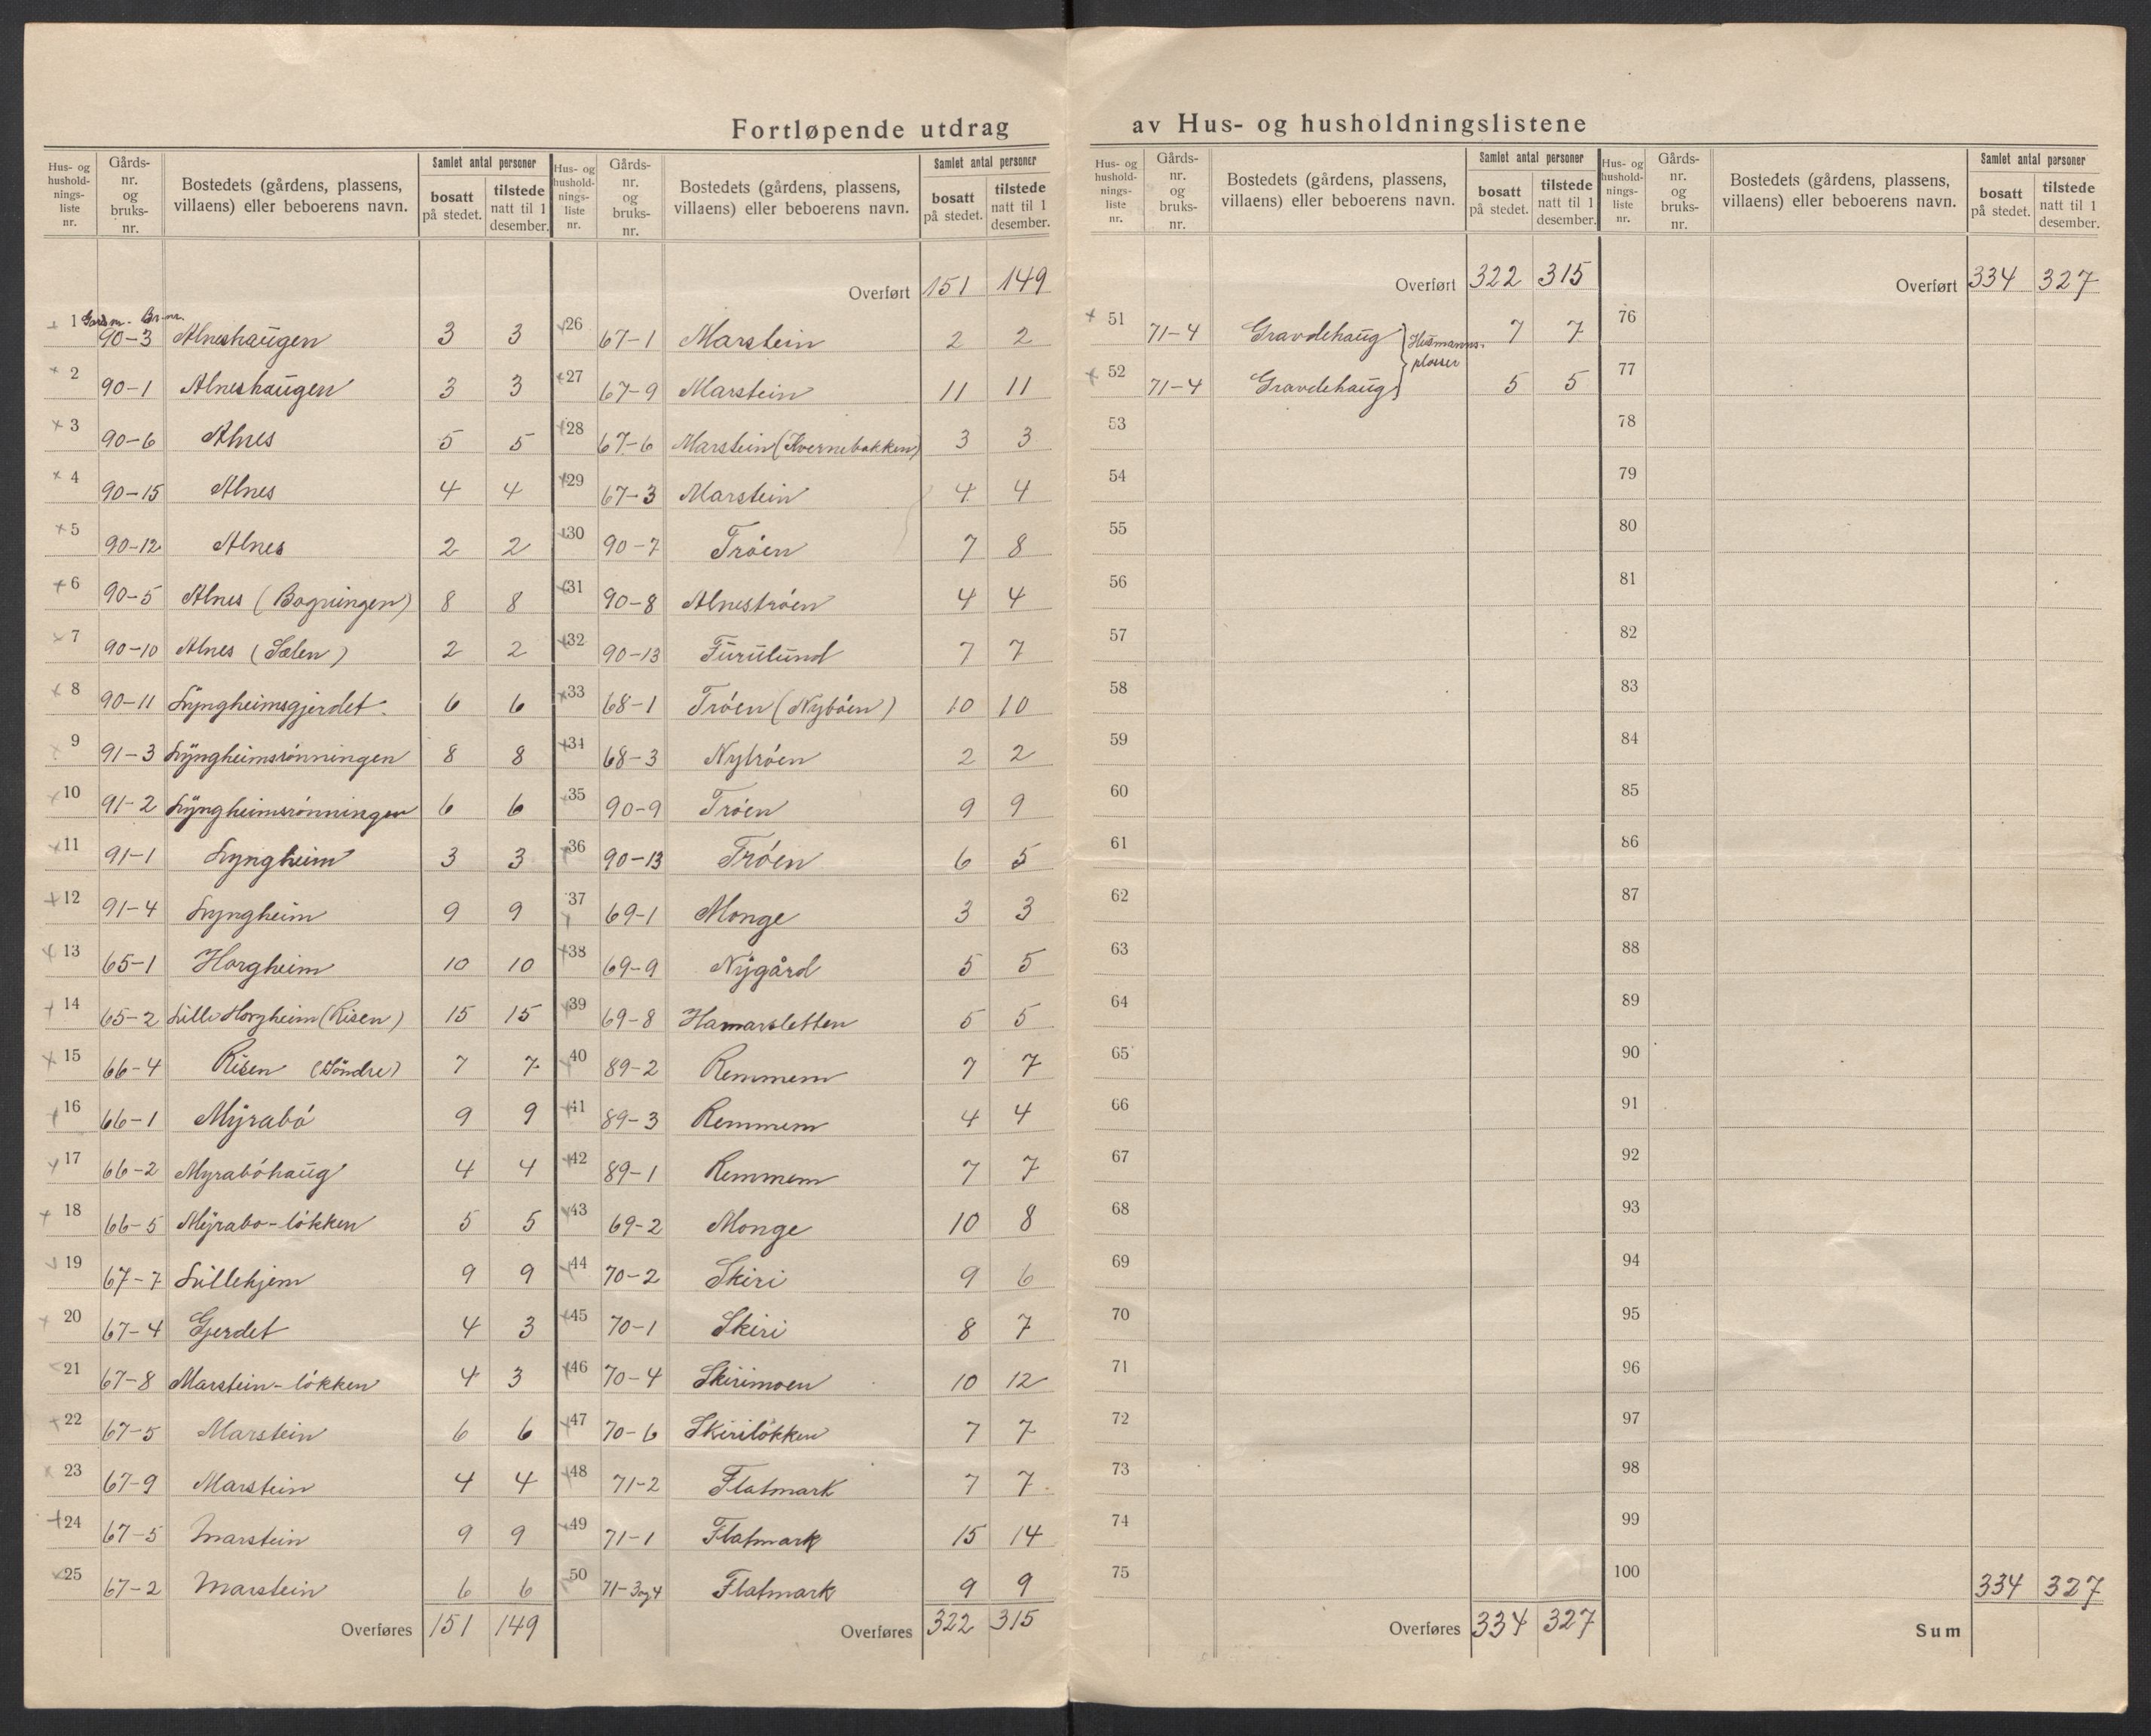 Fortløpende utdrag av Hus- og husholdningslistene
Hus- og hushold- nings- liste nr. | Gårds- nr. og bruks- nr. | Bostedets (gårdens, plassens, villaens) eller beboerens navn. | Samlet antal personer | bosatt på stedet. | tilstede natt til 1 desember.
Gardsnr. Br.nr.
1 90-3 Alneshaugen 3 3
2 90-1 Alneshaugen 3 3
3 90-6 Alnes 5 5
4 90-15 Alnes 4 4
5 90-12 Alnes 2 2
6 90-5 Alnes (Bogningen) 8 8
7 90-10 Alnes (Sælen) 2 2
8 90-11 Lyngheimsgjerdet 6 6
9 91-3 Lyngheimsrönningen 8 8
10 91-2 Lyngheimsrönningen 6 6
11 91-1 Lyngheim 3 3
12 91-4 Lyngheim 9 9
13 65-1 Horgheim 10 10
14 65-2 Lille Horgheim (Risen) 15 15
15 66-4 Risen (Söndre) 7 7
16 66-1 Myrabö 9 9
17 66-2 Myraböhaug 4 4
18 66-5 Myrabo-lökken 5 5
19 67-7 Lillehjem 9 9
20 67-4 Gjerdet 4 3
21 67-8 Marstein-lökken 4 3
22 67-5 Marstein 6 6
23 67-9 Marstein 4 4
24 67-5 Marstein 9 9
25 67-2 Marstein 6 6
Overføres 151 149
Hus- og hushold- nings- liste nr. | Gårds- nr. og bruks- nr. | Bostedets (gårdens, plassens, villaens) eller beboerens navn. | Samlet antal personer | bosatt på stedet. | tilstede natt til 1 desember.
Overført 151 149
26 67-1 Marstein 2 2
27 67-9 Marstein 11 11
28 67-6 Marstein (Kvernebakken) 3 3
29 67-3 Marstein 4 4
30 90-7 Tröen 7 8
31 90-8 Alneströen 4 4
32 90-13 Furulund 7 7
33 68-1 Tröen (Nyböen) 10 10
34 68-3 Nytröen 2 2
35 90-9 Tröen 9 9
36 90-13 Tröen 6 5
37 69-1 Monge 3 3
38 69-9 Nygård 5 5
39 69-8 Hamarsletten 5 5
40 89-2 Remmem 7 7
41 89-3 Remmem 4 4
42 89-1 Remmem 7 7
43 69-2 Monge 10 8
44 70-2 Skiri 9 6
45 70-1 Skiri 8 7
46 70-4 Skirimoen 10 12
47 70-6 Skirilökken 7 7
48 71-2 Flatmark 7 7
49 71-1 Flatmark 15 14
50 71-3og4 Flatmark 9 9
Overføres 322 315
Hus- og hushold- nings- liste nr. | Gårds- nr. og bruks- nr. | Bostedets (gårdens, plassens, villaens) eller beboerens navn. | Samlet antal personer | bosatt på stedet. | tilstede natt til 1 desember.
Overført 322 315
51 71-4 Gravdehaug } Husmanns- 7 7
52 71-4 Gravdehaug } plasser 5 5
53
54
55
56
57
58
59
60
61
62
63
64
65
66
67
68
69
70
71
72
73
74
75
Overføres 334 327
Hus- og hushold- nings- liste nr. | Gårds- nr. og bruks- nr. | Bostedets (gårdens, plassens, villaens) eller beboerens navn. | Samlet antal personer | bosatt på stedet. | tilstede natt til 1 desember.
Overført 334 327
76
77
78
79
80
81
82
83
84
85
86
87
88
89
90
91
92
93
94
95
96
97
98
99
100
334 327
Sum